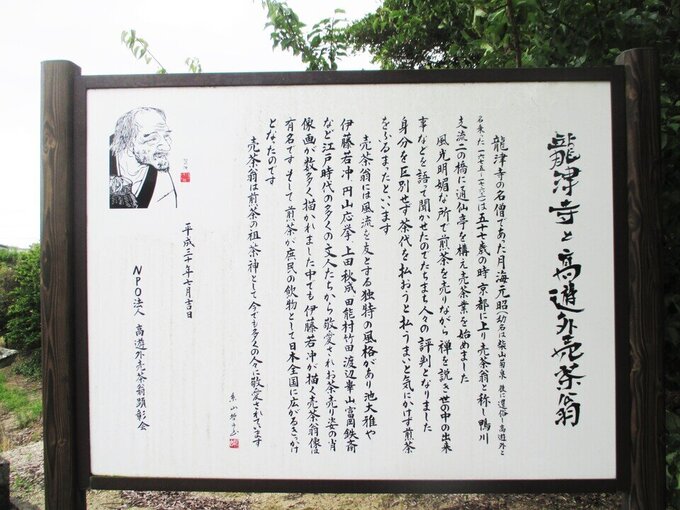 龍津寺と高遊外売茶翁
龍津寺の名僧であった月海元昭(幼名は柴山菊泉 後に還俗し高遊外と
名乗った 一六七五-一七六三)は五十七歳の時 京都に上り売茶翁と称し鴨川
支流二の橋に通仙亭を構え売茶業を始めました
風光明媚な所で煎茶を売りながら禅を説き世の中の出来
事などを語って聞かせたのでたちまち人々の評判となりました
身分を区別せず茶代を払おうと払うまいと気にかけず煎茶
をふるまったといいます
売茶翁には風流を友とする独特の風格があり池大雅や
伊藤若冲 円山応挙 上田秋成 田能村竹田 渡辺崋山 富岡鉄斎
など江戸時代の多くの文人たちから敬愛されお茶売り姿の肖
像画が数多く描かれました中でも伊藤若冲が描く売茶翁像は
有名です そして煎茶が庶民の飲物として日本全国に広がるきっかけ
となったのです
売茶翁は煎茶の祖茶神として今でも多くの人々に敬愛されています
平成三十年七月吉日
NPO法人 高遊外売茶翁顕彰会